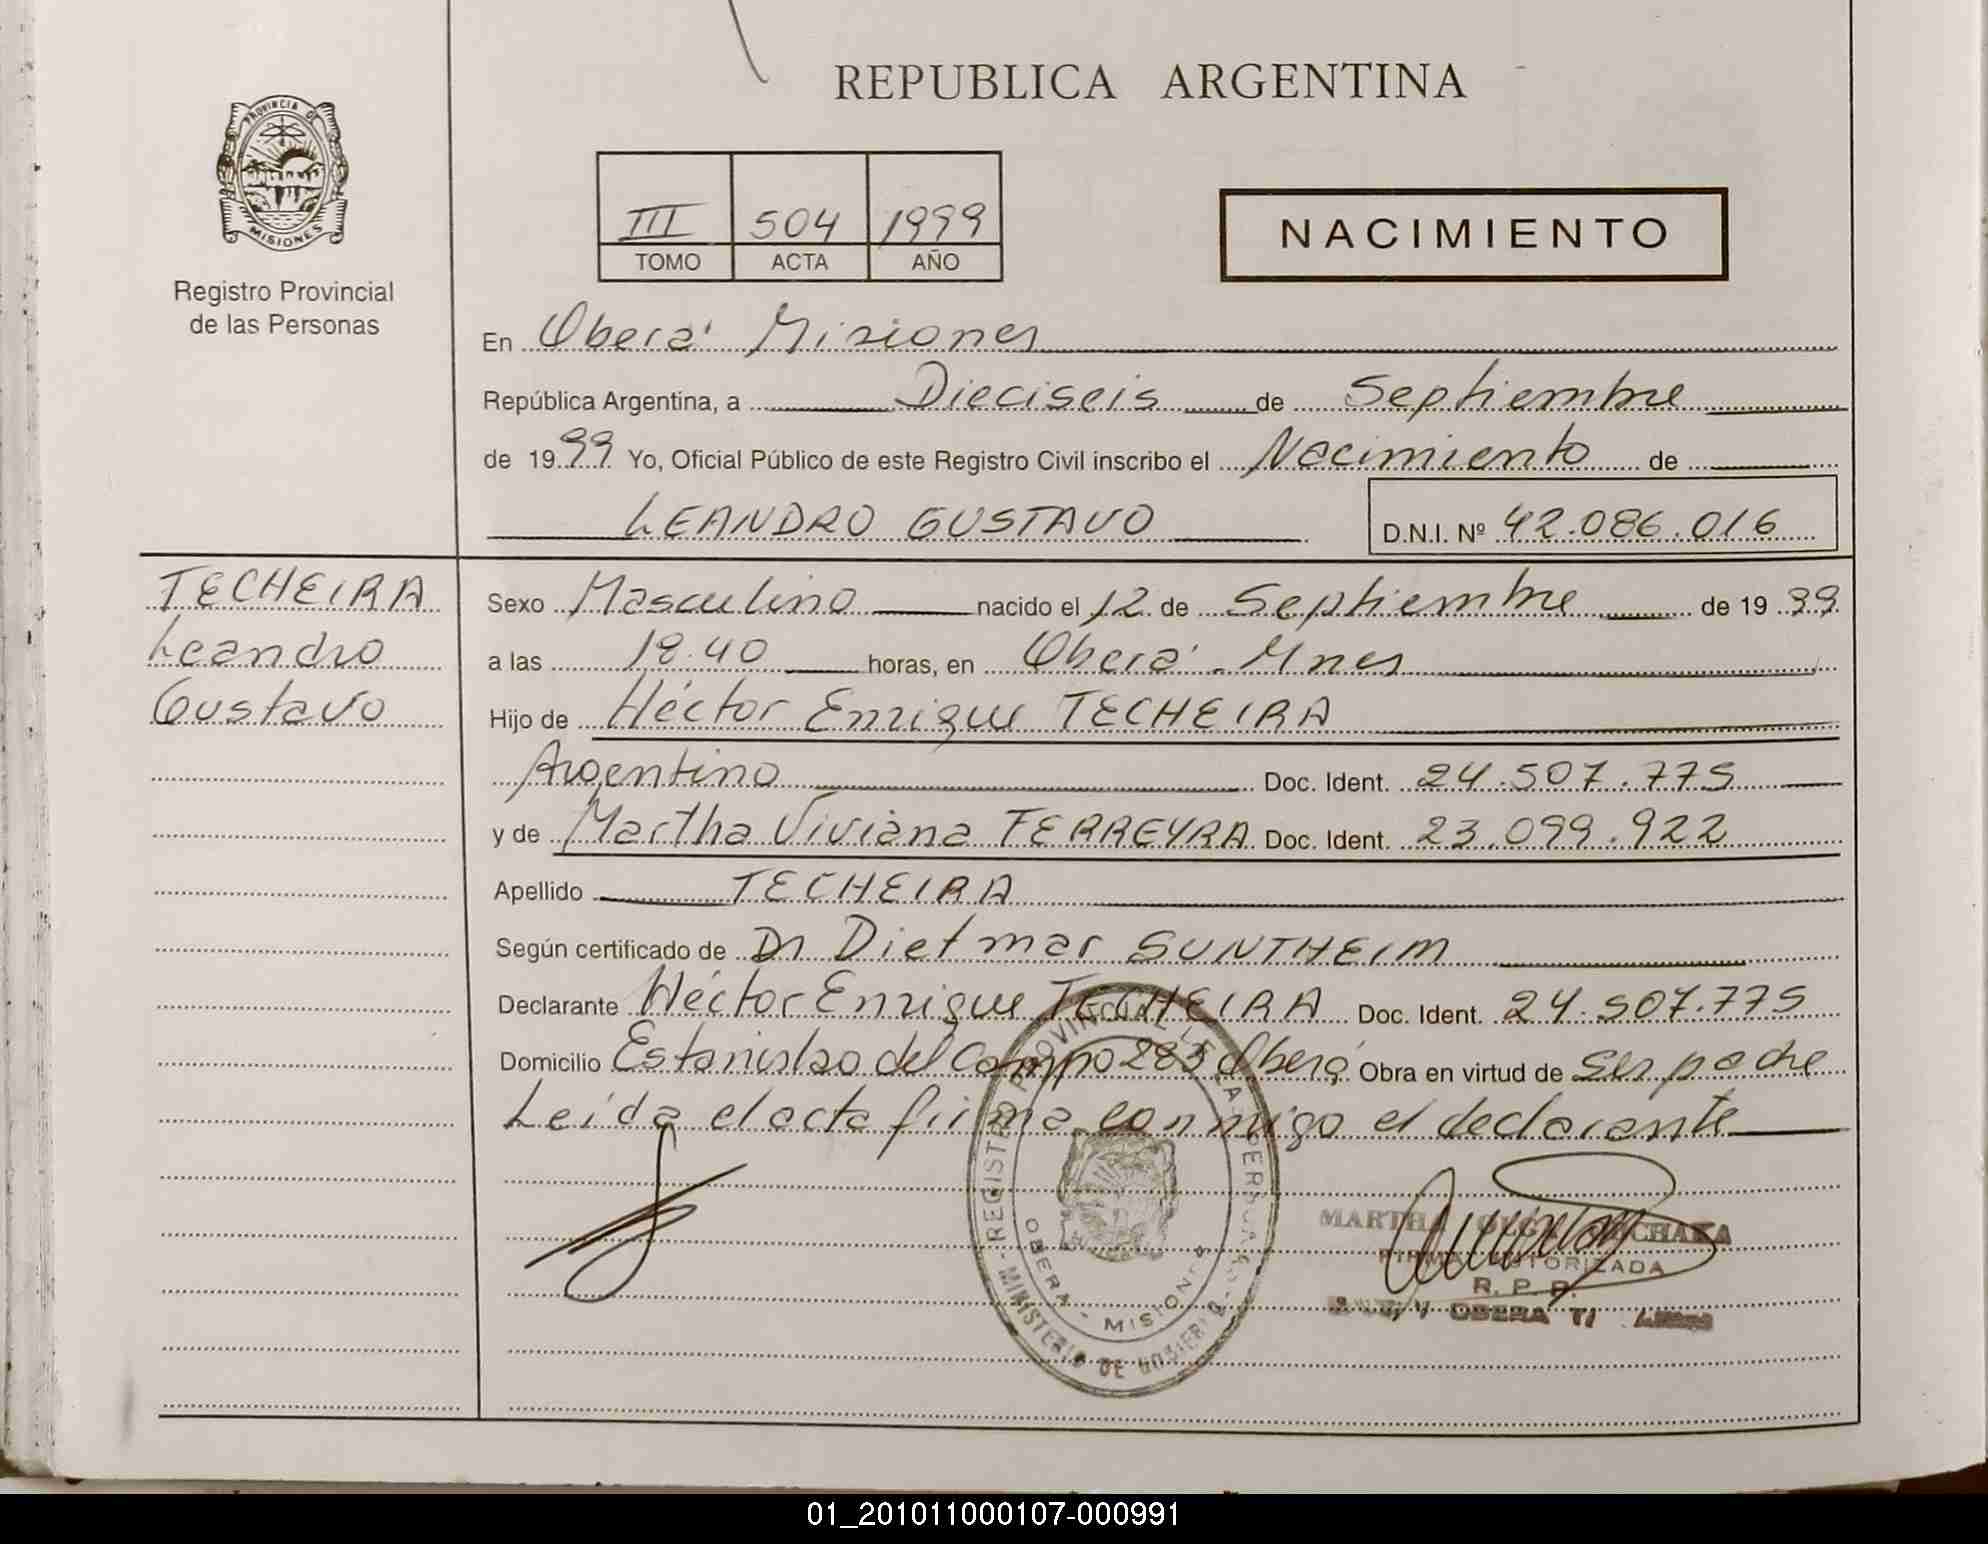 REPUBLICA ARGENTINA
PROVINCIA DE
MISIONES
Registro Provincial
de las Personas
III 504 1999
TOMO ACTA AÑO
NACIMIENTO
En Oberá Misiones
República Argentina, a Dieciseis de Septiembre
de 1999 Yo, Oficial Público de este Registro Civil inscribo el Nacimiento de
LEANDRO GUSTAVO D.N.I. Nº 42.086.016
TECHEIRA
Leandro
Gustavo
Sexo Masculino nacido el 12 de Septiembre de 1999
a las 18.40 horas, en Oberá - Mnes
Hijo de Héctor Enrique TECHEIRA
Argentino Doc. Ident. 24.507.775
y de Martha Viviana FERREYRA Doc. Ident. 23.099.922
Apellido TECHEIRA
Según certificado de Dr Dietmar SUNTHEIM
Declarante Héctor Enrique TECHEIRA Doc. Ident. 24.507.775
Domicilio Estanislao del Campo 283 Oberá Obra en virtud de ser padre
Leída el acta firma conmigo el declarante
REGISTRO PROVINCIAL DE LAS PERSONAS
OBERA - MISIONES
MINISTERIO DE GOBIERNO
MARTHA OLGA
FIRMA AUTORIZADA
R. P. P.
OBERA
01_201011000107-000991